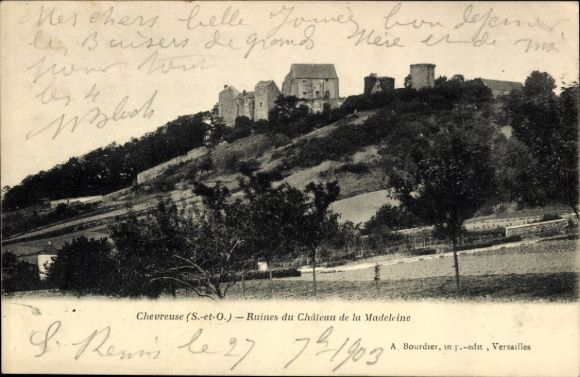 Mes chers belle Journée bon dejeuner
les Baisers de grands Mère et de ma
pour tout
les 4
W Bloch
Chevreuse (S.-et-O.) — Ruines du Château de la Madeleine
S. Remis le 27 7b 1903
A Bourdier, imp.-edit , Versailles